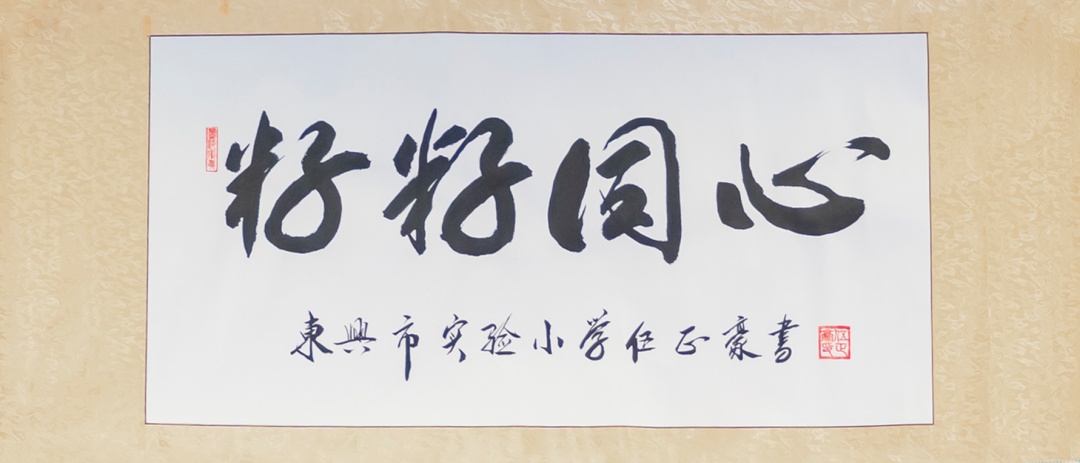 籽籽同心
東興市实验小学伍正豪書